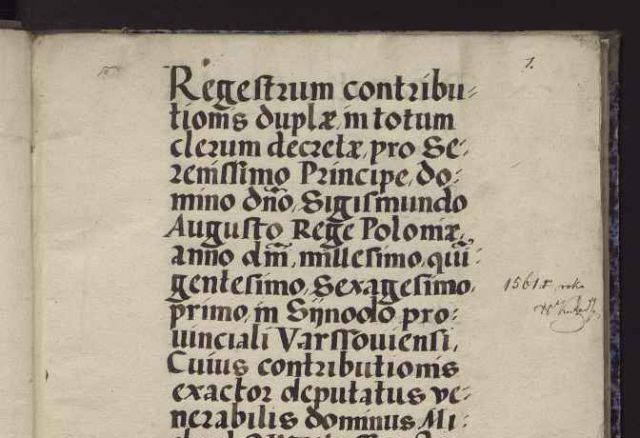 1.
Regestrum contribu-
tionis duplæ, in totum
clerum decretæ, pro Se-
renissimo Principe, do-
mino dño, Sigismundo
Augusto Rege Poloniæ,
anno dni, millesimo, qui-
gentesimo, Sexagesimo,
primo, in Sijnodo pro-
uinciali Varssouiensi,
Cuius contributionis
exactor deputatus ve-
nerabilis dominus Mi-
1561. roku